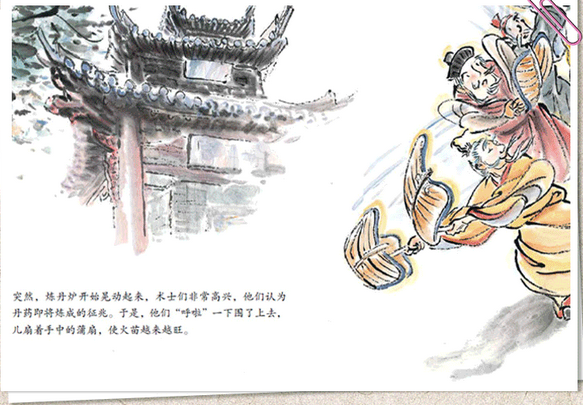 突然，炼丹炉开始晃动起来，术士们非常高兴，他们认为
丹药即将炼成的征兆。于是，他们“呼啦”一下围了上去，
儿扇着手中的蒲扇，使火苗越来越旺。